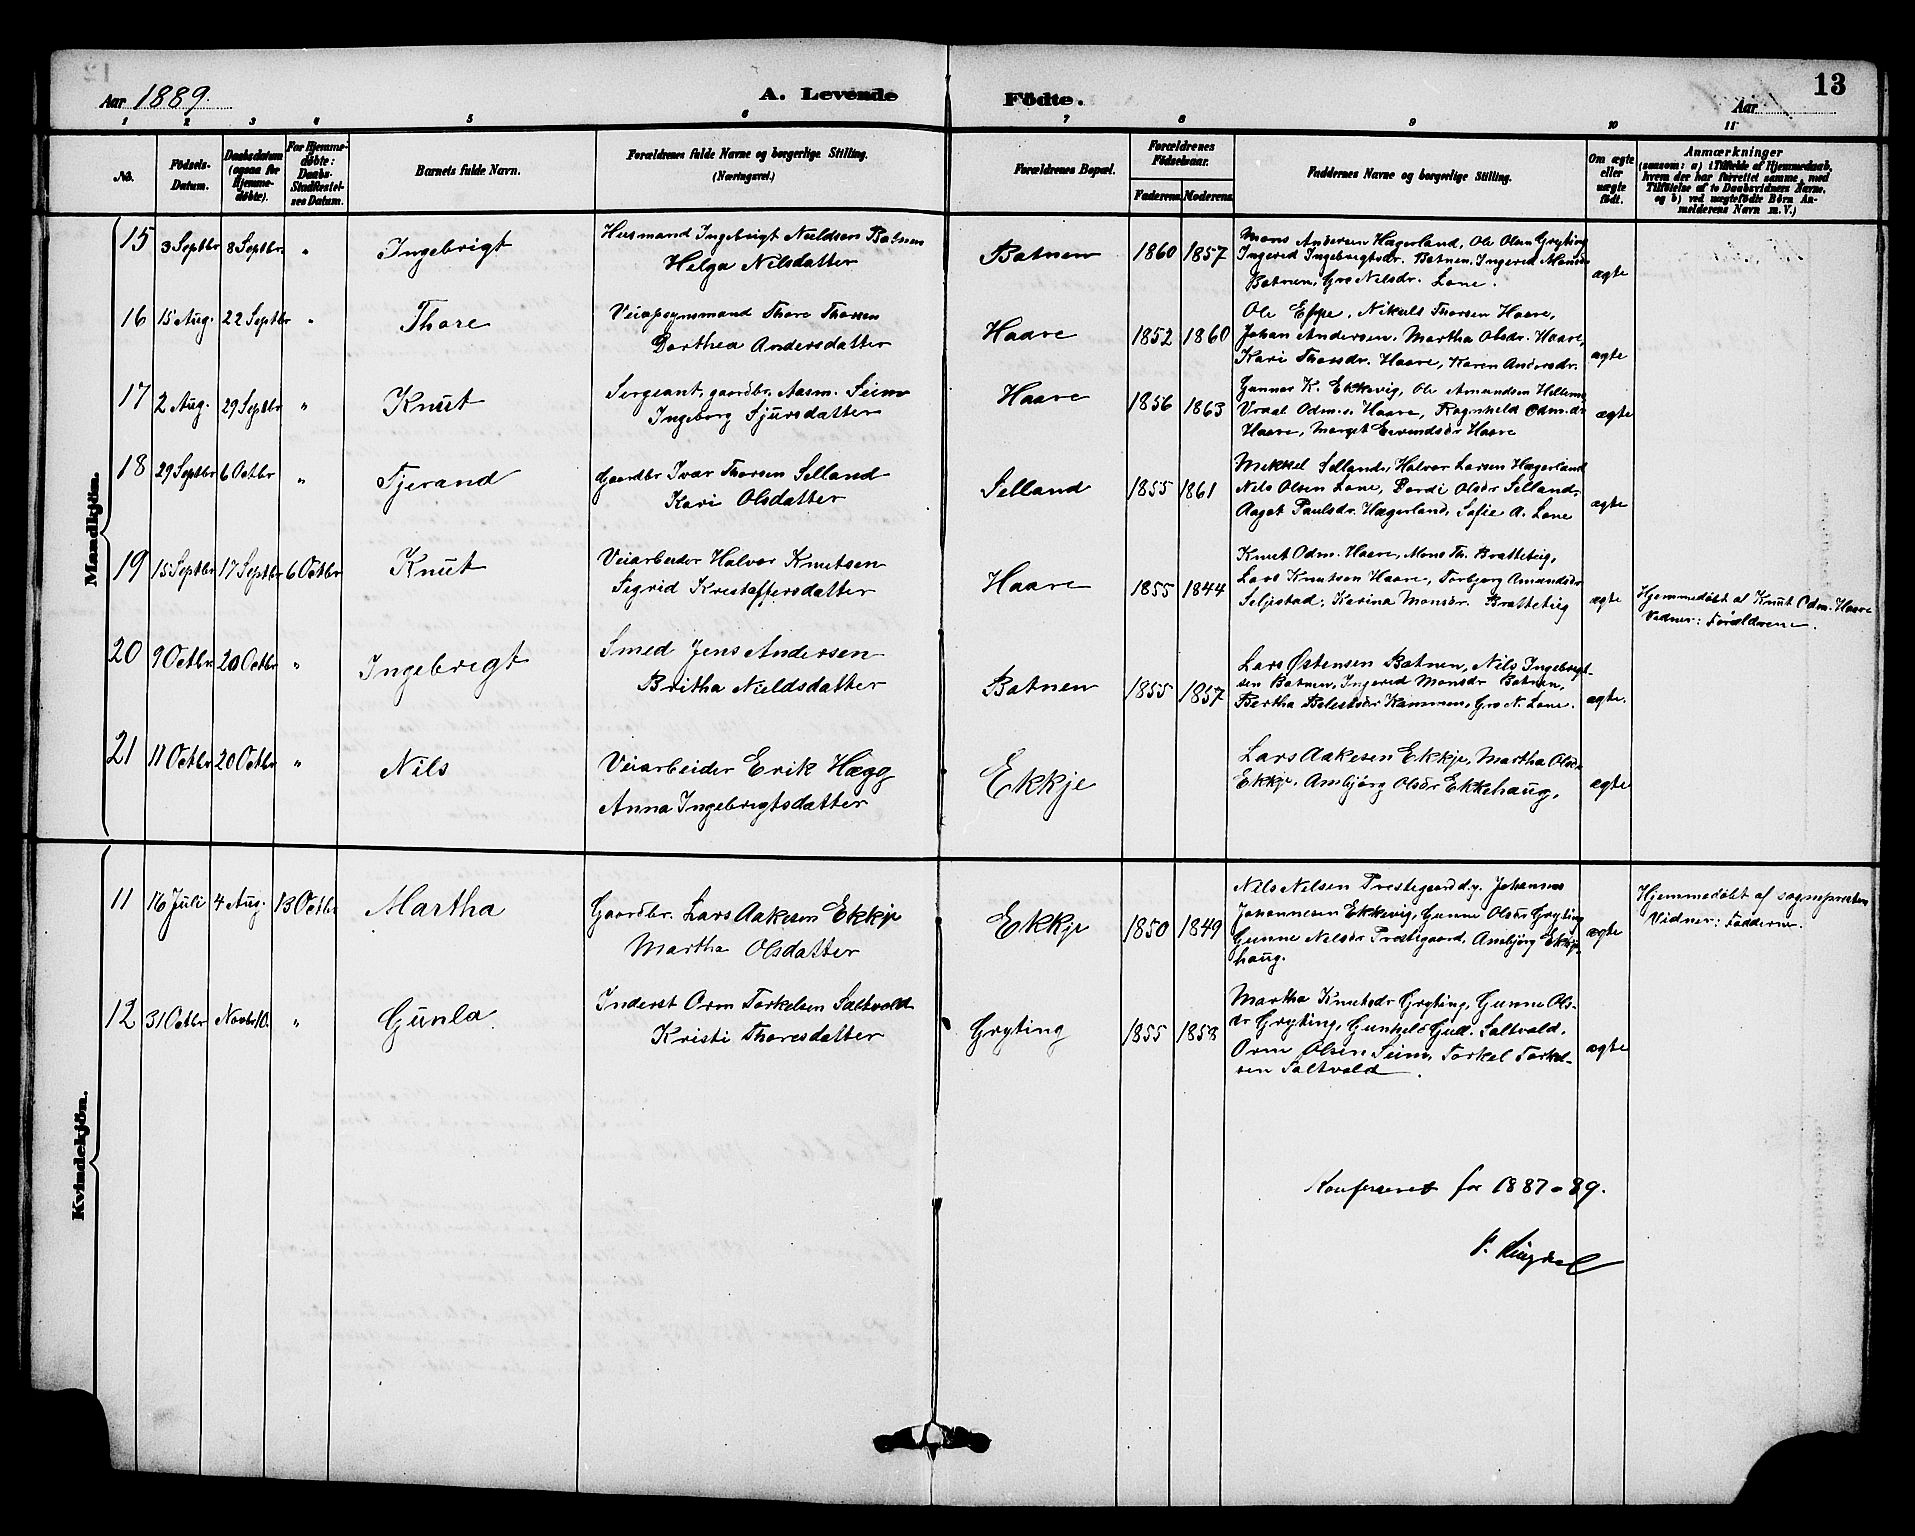 13
Aar 1889. A. Levende Födte. Aar
1 2 3 4 5 6 7 8 9 10 11
No. Födsels-Datum. Daabsdatum (ogsaa for Hjemmedøbte). For Hjemmedøbte: Daabs-Stadfæstelses Datum. Barnets fulde Navn. Forældrenes fulde Navne og borgerlige Stilling. (Næringsvei.) Forældrenes Bopæl. Forældrenes Födselsaar. Faderens Moderens Faddernes Navne og borgerlige Stilling. Om ægte eller uægte födt. Anmærkninger (saasom: a) i Tilfælde af Hjemmedaab, hvem der har forrettet samme, med Tilföielse af to Daabsvidners Navne, og b) ved uægtefödte Börn Anmelderens Navn m. V.)
Mandkjön.
15 3 Septbr 8 Septbr. " Ingebrigt Husmand Ingebrigt Nieldsen Batnen
Helga Nilsdatter Batnen 1860 1857 Mons Andersen Hægerland, Ole Olsen Gryting
Ingerid Ingebrigtsdr. Batnen, Ingerid Monsdr
Batnen, Gro Nilsdr. Lone. ægte
16 15 Aug. 22 Septbr " Thore Thore Thorsen
Dorthea Andersdatter Haare 1852 1860 Ole Eppe, Nikuls Thorsen Haare,
Johan Andersen, Martha Olsdr. Haare,
Kari Thorsdr. Haare, Karen Andersdr. ægte
17 2 Aug. 29 Septbr " Knut Sergeant, gaardbr. Aasm. Seim
Ingeborg Sjursdatter Haare 1856 1863 Gunnar K. Ekkevig, Ole Amundsen
Vraal Odm.s. Haare, Ragnhild Odm.dr
Haare, Marget Eivendsdr Haare ægte
18 29 Septbr 6 Octbr " Tjerand Gaardbr Ivar Thorsen Selland
Kari Olsdatter Selland 1855 1861 Mikkel Selland, Halvor Larsen Hægerland
Nils Olsen Lone, Dordi Olsdr Selland,
Aagot Paulsdr. Hægerland, Sofie A. Lone ægte
19 15 Septbr 17 Septbr 6 Octbr Knut Veiarbeider Halvor Knutsen
Sigrid Kristaffersdatter Haare 1855 1844 Knut Odm. Haare, Mons Th. Bratteteig,
Lars Knutsen Haare, Torbjorg Amundsdr
Seljestad, Karina Monsdr. Bratteteig ægte Hjemmedøbt af Knut Odm. Haare
Vidner: Forældrene.
20 9 Octbr 20 Octbr " Ingebrigt Smed Jens Andersen
Britha Nieldsdatter Batnen 1855 1857 Lars Østensen Batnen, Nils Ingebrigt-
sen Batnen, Ingerid Monsdr Batnen,
Bertha Kammen, Gro N. Lone. ægte.
21 11 Octbr 20 Octbr " Nils Veiarbeider Erik Hægg
Anna Ingebrigtsdatter Ekkje Lars Aakesen Ekkje, Martha Olsdr
Ekkje, Ambjörg Olsdr Ekkehaug, ægte
Kvindekjön.
11 16 Juli 4 Aug. 13 Octbr Martha Gaardbr. Lars Aakesen Ekkje
Martha Olsdatter Ekkje 1850 1849 Nils Nilsen Prestegaard. Johannes
Johannesen Ekkevig, Gunne Olsdr Gryting
Gunne Nilsdr Prestegaard, Ambjörg Ekkje-
haug. ægte Hjemmedøbt af sognepresten
Vidner: Fadderne.
12 31 Octbr Novbr 10. " Gunla. Inderst Orm Torkelsen Saltvold
Kristi Thoresdatter Gryting 1855 1858 Martha Knutsdr Gryting, Gunne Ols-
dr Gryting, Gunhild Gud. Saltvold,
Orm Olsen Seim, Torkel Torkel-
sen Saltvold. ægte
Konfereret for 1887-89.